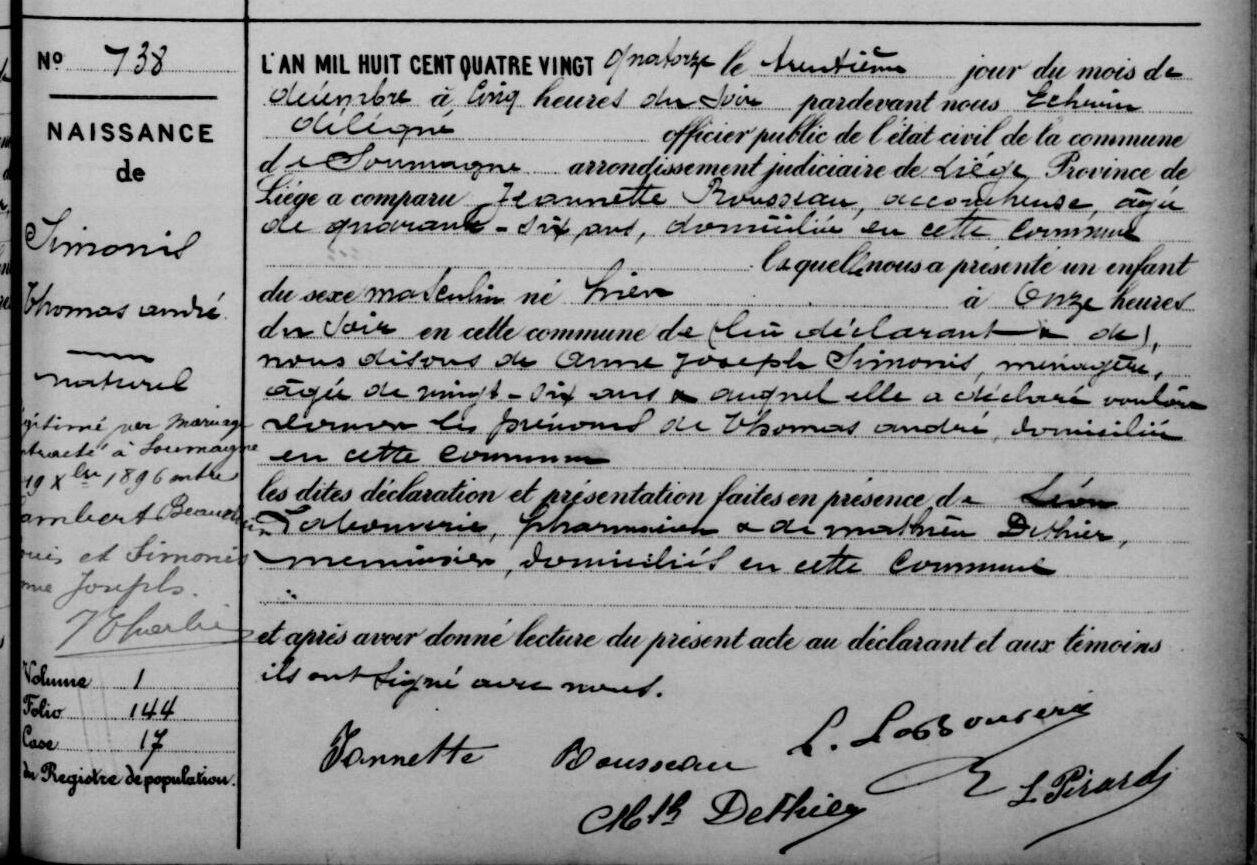 No 738
NAISSANCE
de
Simonis
Thomas andré
naturel
gitimé par mariage
tracté à Soumagne
19 Xbre 1896 entre
ambert
et Simonis
me Joseph.
Volume 1
Folio 144
Case 17
du Registre de population.
L'AN MIL HUIT CENT QUATRE VINGT quatorze le trentième jour du mois de
décembre à Cinq heures du soir pardevant nous Echevin
délégué officier public de l'état civil de la commune
de Soumagne arrondissement judiciaire de Liége Province de
Liége a comparu Jeannette Rousseau, accoucheuse, âgée
de quarante-six ans, domiciliée en cette Commune
laquelle nous a présenté un enfant
du sexe masculin né hier à Onze heures
du soir en cette commune de (lui déclarant & de),
nous disons de Anne Joseph Simonis, ménagère,
âgée de vingt-six ans & auquel elle a déclaré vouloir
donner les prénoms de Thomas andré, domiciliée
en cette Commune
les dites déclaration et présentation faites en présence de Léon
Labouverie, pharmacien & de mathieu Dethier,
menuisier, domiciliés en cette Commune
et après avoir donné lecture du présent acte au déclarant et aux témoins
ils ont signé avec nous.
Jannette Rousseau L. Labouverie
Mth Dethier L Pirard